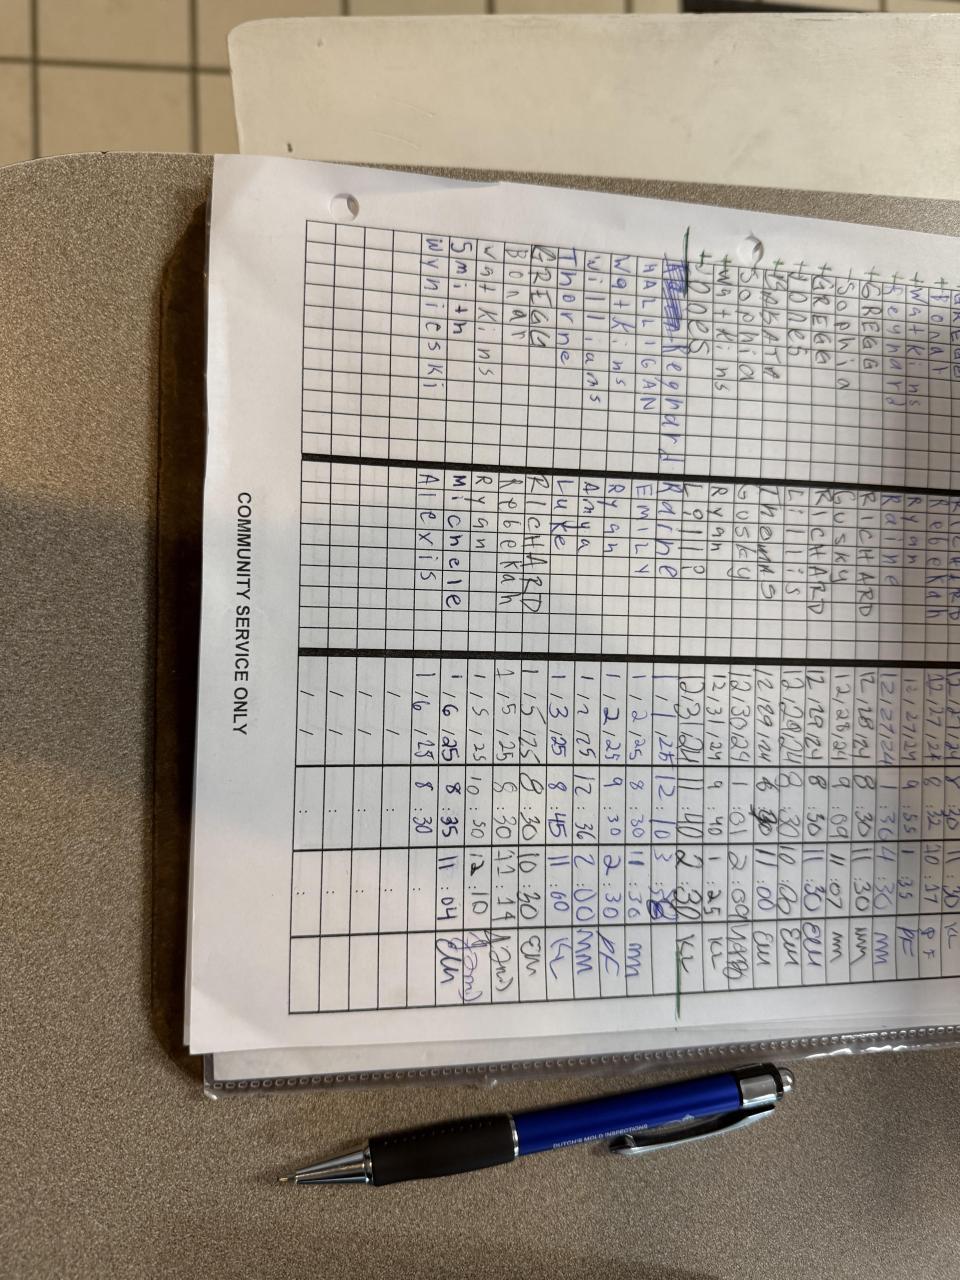 GREGG RICHARD
+ Bonat Rebekah 12/27/24 8:32 10:57 PF
+ Watkins Ryan 12/27/24 9:55 1:35 PF
Reynard Raine 12/27/24 1:36 4:36 MM
+ GREGG RICHARD 12/28/24 8:30 11:30 MM
- Sophia Gusky 12/28/24 9:09 11:07 MM
+ GREGG RICHARD 12/29/24 8:30 11:30 EM
+ Jones Lillis 12/29/24 8:30 10:00 EM
THOMAS 12/29/24 11:00 EM
Sophia Gusky 12/30/24 1:01 2:00
+ Watkins Ryan 12/31/24 9:40 1:25 KL
+ Jones 12/31/24 11:40 2:30 KL
Regnard Raine 1/1/25 12:10
HALLIGAN EMILY 1/2/25 8:30 11:30 MM
Watkins Ryan 1/2/25 9:30 2:30 PF
Williams Amya 1/2/25 12:36 2:00 MM
Thorne Luke 1/3/25 8:45 11:00 KL
GREGG RICHARD 1/5/25 8:30 10:30 EM
Bonar Rebekah 1/5/25 8:30 11:14
Watkins Ryan 1/5/25 10:50 12:10
Smith Michele 1/6/25 8:35 11:04 EM
Wynicski Alexis 1/6/25 8:30
COMMUNITY SERVICE ONLY
DUTCH'S MOLD INSPECTIONS